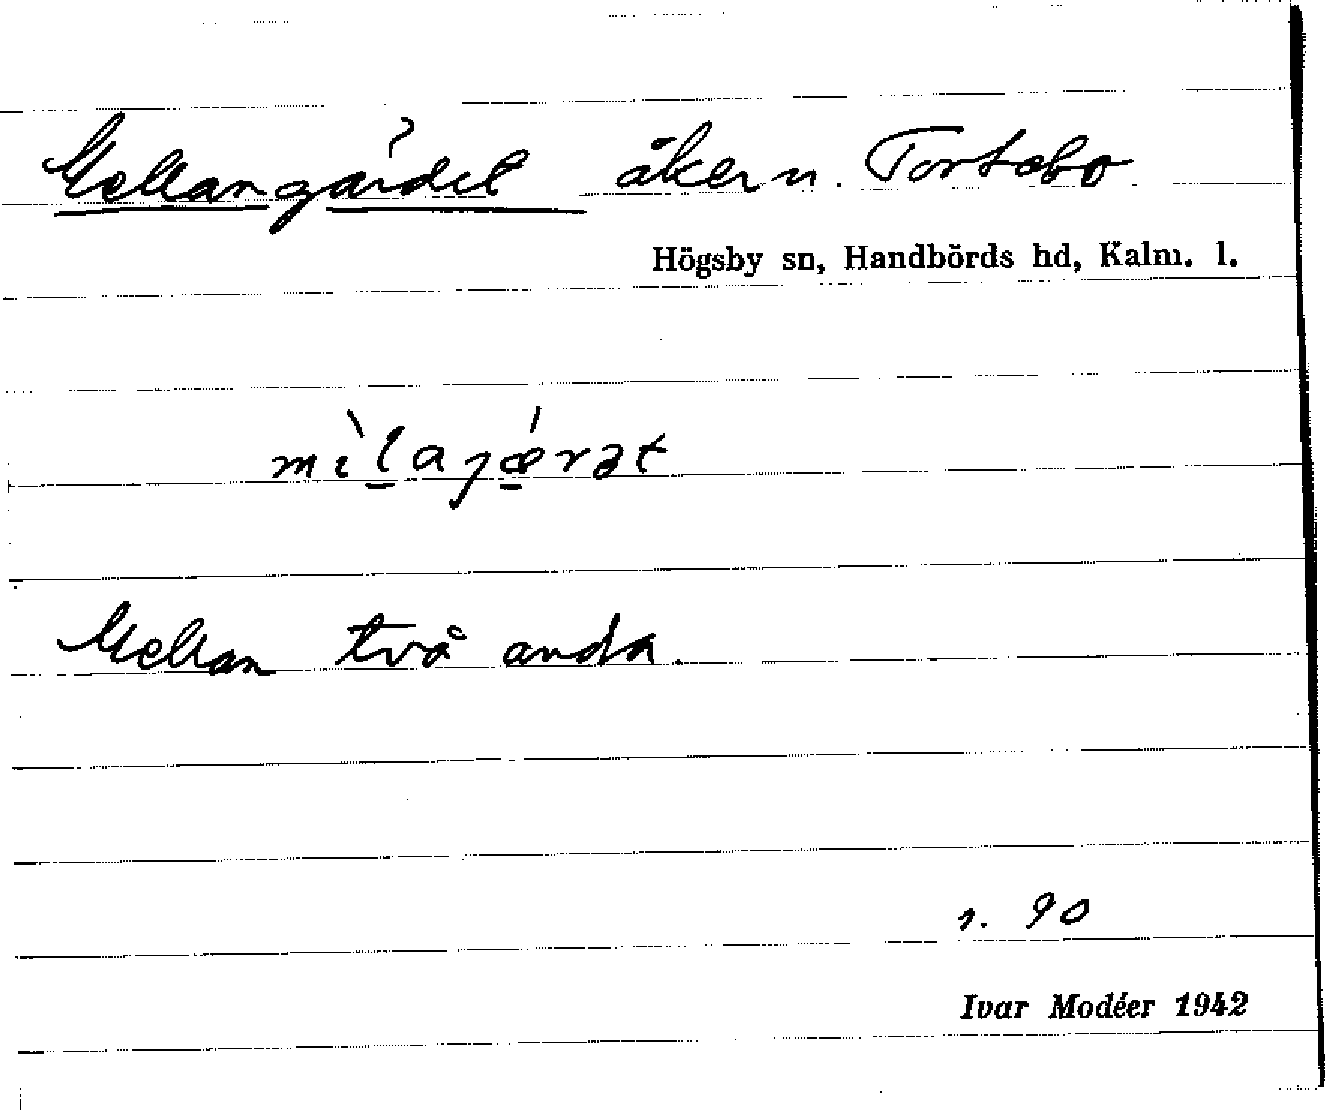 Mellangärdet åkern. Tortebo
Högsby sn, Handbörds hd, Kalm. l.
mìlajæ̀rət
Mellan två andra.
s. 90
Ivar Modéer 1942